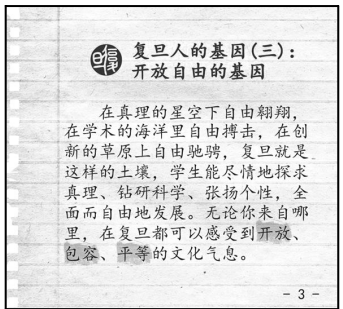 复旦
复旦人的基因(三):
开放自由的基因
在真理的星空下自由翱翔,
在学术的海洋里自由搏击,在创
新的草原上自由驰骋,复旦就是
这样的土壤,学生能尽情地探求
真理、钻研科学、张扬个性,全
面而自由地发展。无论你来自哪
里,在复旦都可以感受到开放、
包容、平等的文化气息。
- 3 -